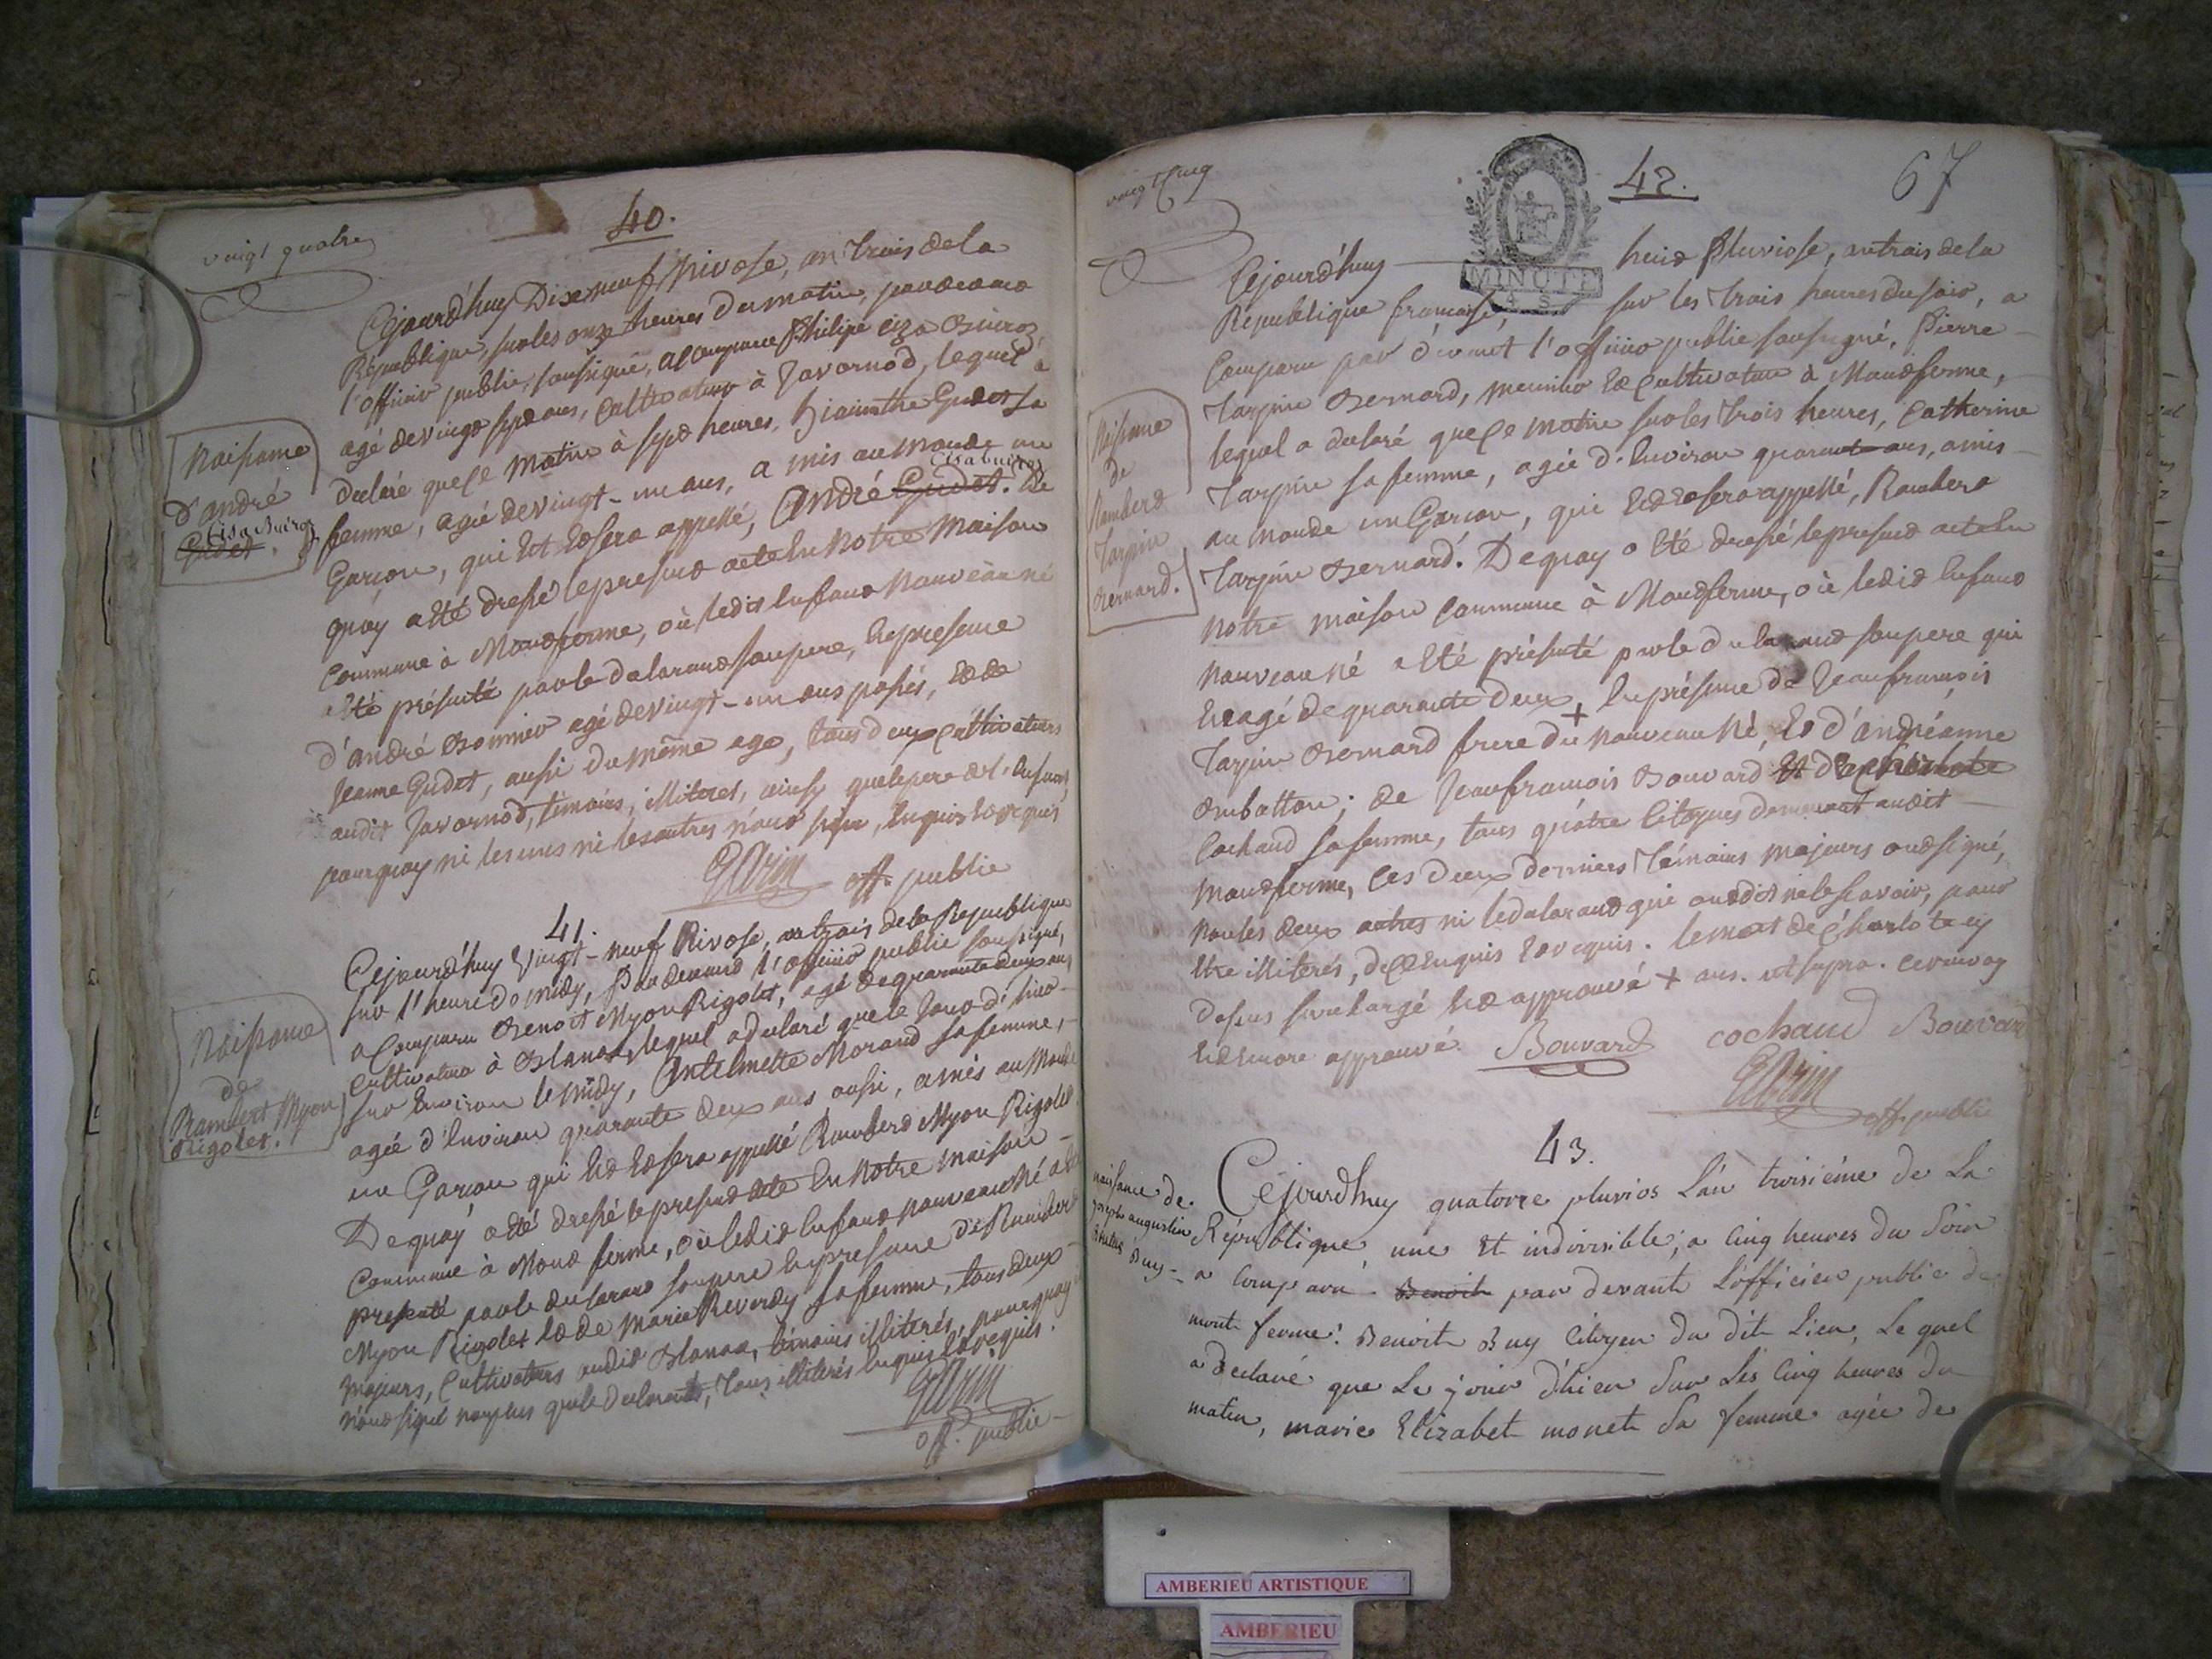 vingt quatre
40.
Cejourd'huy Dixneuf Nivose, an trois de la
République, sur les onze heures du matin, pardevant
l'officier public, soussigné, a comparu Philipe Ciza Buiroz,
agé de vingt sept ans, cultivateur à Javornod, lequel a
declaré que ce matin à sept heures, hiacinthe Gudet sa
femme, agée de vingt-un ans, a mis au monde un
Cisa buiroz
Garçon, qui est et sera appellé, André Gudet. De
quoy a été dressé le present acte en notre maison
commune à Montferme, où ledit enfant nouveau né
a été présenté par le declarant son pere, en presence
d'andré Bonnier agé de vingt-un ans passés, et de
Jeanne Gudet, aussi du même age, tous deux cultivateurs
audit Javornod, témoins, illiterés, ainsy que le pere de l'enfant,
pourquoy ni les uns ni les autres n'ont signé, enquis et requis
off. public
Naissance
d'andré
Cisa Buiroz
Gudet.
41.
Cejourd'huy vingt-neuf Nivose, an trois de la République
sur l'heure de midy, Pardevant l'officier public soussigné,
a comparu Benoit Myon Rigolet, agé de quarante deux ans
cultivateur à Blanaz, lequel a declaré que le jour d'hier
sur environ le midy, Antelmette Morand sa femme,
agée d'environ quarante deux ans aussi, a mis au monde
un Garçon qui est et sera appellé Rambert Myon Rigolet
De quoy a été dressé le present acte en notre maison
commune à Mont ferme, où ledit enfant nouveau né a été
presenté par le declarant son pere en presence de Rambert
Myon Rigolet et de Marie Reverdy sa femme, tous deux
majeurs, cultivateurs audit Blanaz, témoins illiterés, pourquoy
n'ont signé non plus que le declarant, tous illiterés enquis et requis.
off. public
Naissance
de
Rambert Myon
Rigolet.
vingt cinq
42.
67
MINUTE
4 S
Cejourd'huy huit Pluviose, an trois de la
République francaise, sur les trois heures du soir, a
comparu par devant l'officier public soussigné, Pierre
Tarpin Bernard, meunier et cultivateur à Montferme,
lequel a declaré que ce matin sur les trois heures, Catherine
Tarpin sa femme, agée d'environ quarante ans, a mis
au monde un Garcon, qui est et sera appellé, Rambert
Tarpin Bernard. De quoy a été dressé le present acte en
notre maison commune à Montferme, où ledit enfant
nouveau né a été présenté par le declarant son pere qui
est agé de quarante deux + en présence de Jean francois
Tarpin Bernard frere du nouveau né, et d'andréanne
Brubatton; de Jean francois Bouvard et de Charlote
Cochaud sa femme, tous quatre citoyens demeurant audit
Montferme, les deux derniers témoins majeurs ont signé,
non les deux autres ni le declarant qui ont dit ne le scavoir, pour
être illiterés, de ce enquis et requis. le mot de Charlote cy
dessus surchargé est approuvé + ans. ut supra. ce renvoy
est encore approuvé. Bouvard cochaud Bouvard
off. public
Naissance
de
Rambert
Tarpin
Bernard.
43.
Cejourdhuy quatorze pluvios L'an troisiéme de La
République, une et indivisible, a cinq heures du Soir
a comparu Benoit par devant L'officier public de
mont ferme: Benoit Buy Citoyen du dit Lieu, Le quel
a declaré que Le jour d'hier Sur Les cinq heures du
matin, marie Elizabet monet Sa femme agée de
naissance de
joseph augustin
Buy
AMBERIEU ARTISTIQUE
AMBERIEU